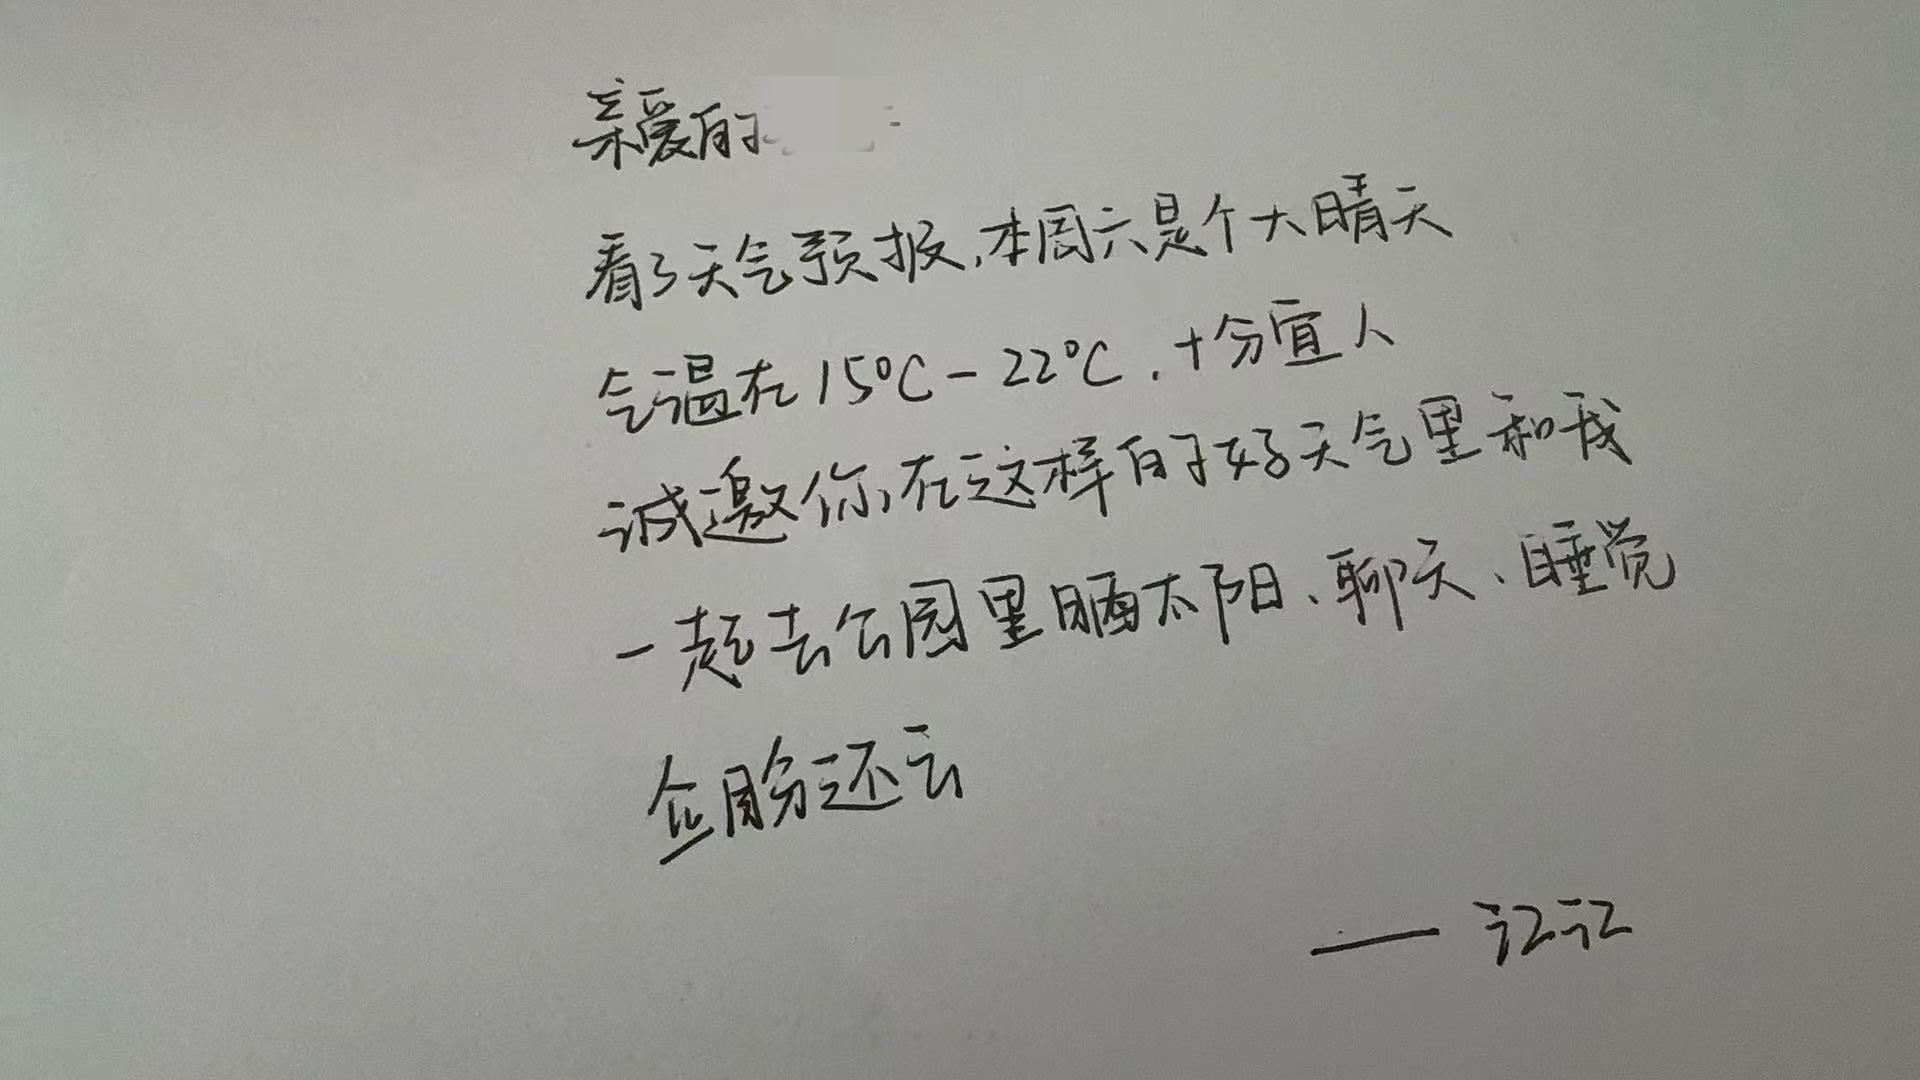 亲爱的:
看了天气预报,本周六是个大晴天
气温在15℃-22℃.十分宜人
诚邀你,在这样的好天气里和我
一起去公园里晒太阳、聊天、睡觉
企盼还云
——江江